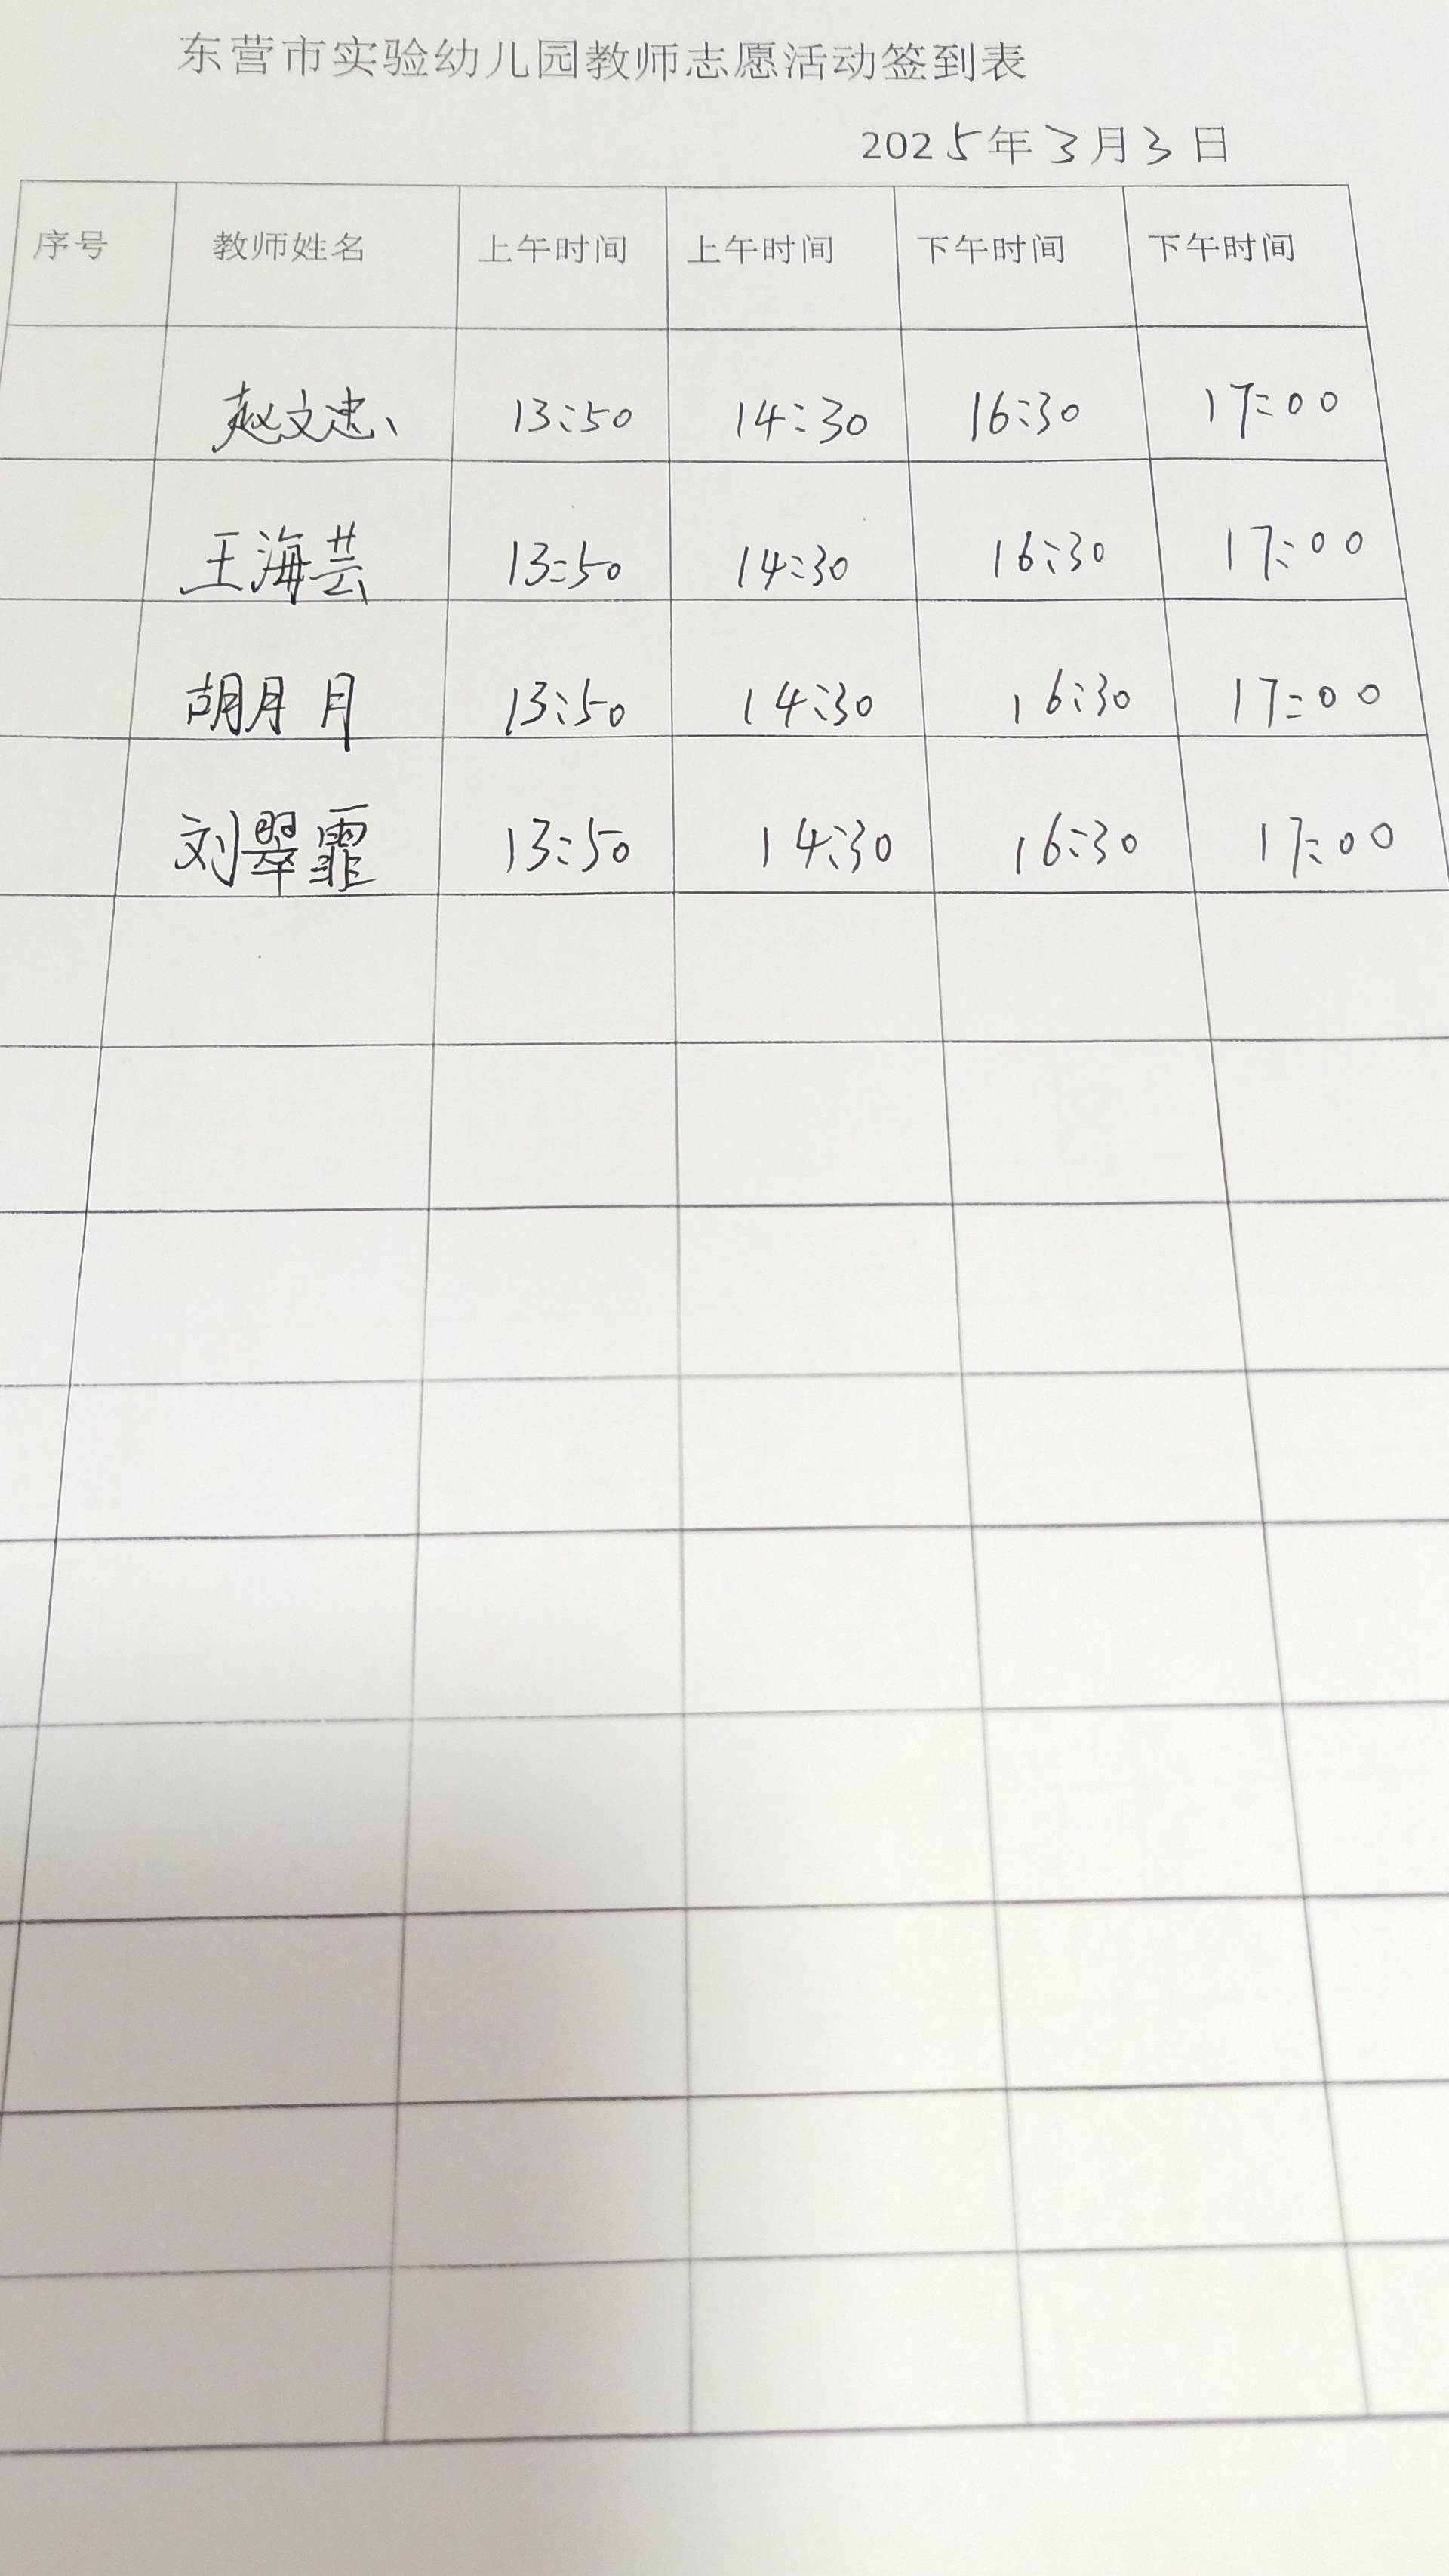 东营市实验幼儿园教师志愿活动签到表
2025年3月3日
序号 教师姓名 上午时间 上午时间 下午时间 下午时间
赵文忠、 13:50 14:30 16:30 17:00
王海芸 13:50 14:30 16:30 17:00
胡月月 13:50 14:30 16:30 17:00
刘翠霏 13:50 14:30 16:30 17:00